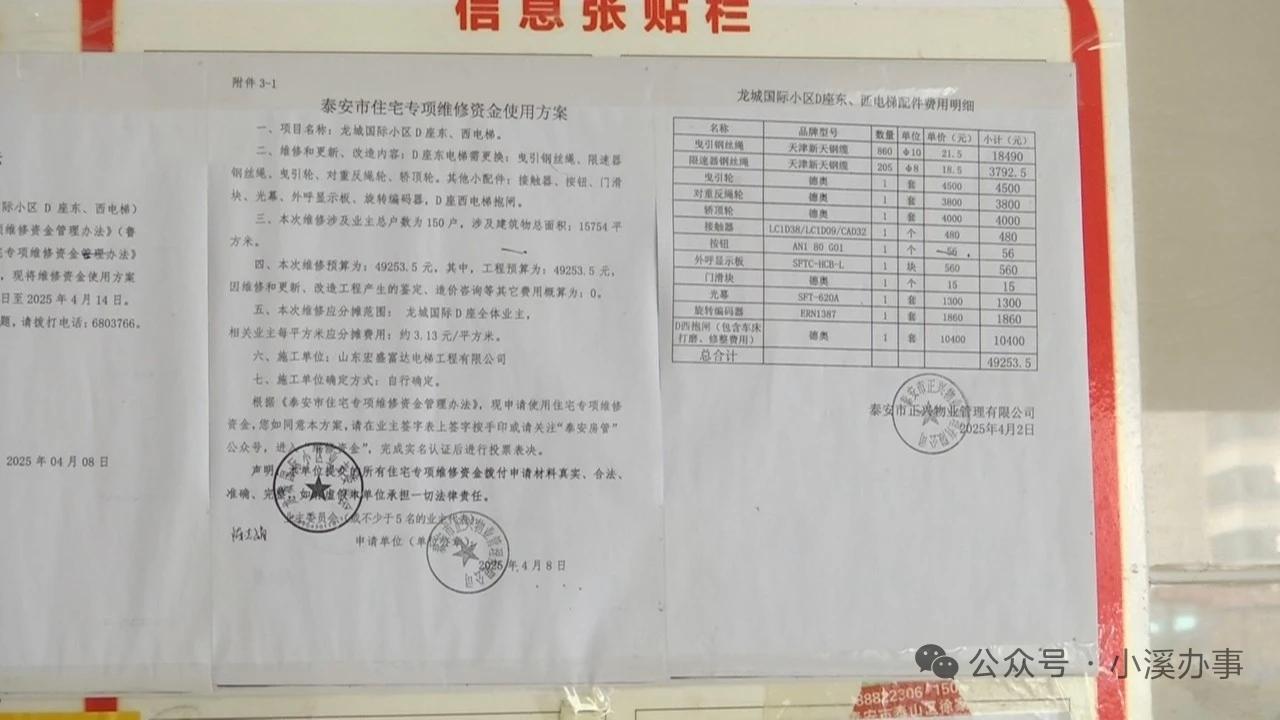 信息张贴栏
际小区 D 座东、西电梯）
维修资金管理办法》（鲁
宅专项维修资金管理办法》
，现将维修资金使用方案
日至 2025 年 4 月 14 日。
题，请拨打电话：6803766。
2025 年 04 月 08 日
附件 3-1
泰安市住宅专项维修资金使用方案
一、项目名称：龙城国际小区 D 座东、西电梯。
二、维修和更新、改造内容：D 座东电梯需更换：曳引钢丝绳、限速器
钢丝绳、曳引轮、对重反绳轮、轿顶轮。其他小配件：接触器、按钮、门滑
块、光幕、外呼显示板、旋转编码器，D 座西电梯抱闸。
三、本次维修涉及业主总户数为 150 户，涉及建筑物总面积：15754 平
方米。
四、本次维修预算为：49253.5 元，其中，工程预算为：49253.5 元，
因维修和更新、改造工程产生的鉴定、造价咨询等其它费用概算为：0。
五、本次维修应分摊范围： 龙城国际 D 座全体业主，
相关业主每平方米应分摊费用：约 3.13 元/平方米。
六、施工单位：山东宏盛富达电梯工程有限公司
七、施工单位确定方式：自行确定。
根据《泰安市住宅专项维修资金管理办法》，现申请使用住宅专项维修
资金,您如同意本方案，请在业主签字表上签字按手印或请关注“泰安房管”
公众号，进入“维修资金”，完成实名认证后进行投票表决。
声明：本单位提交的所有住宅专项维修资金拨付申请材料真实、合法、
准确、完整，如有虚假本单位承担一切法律责任。
业主委员会（或不少于 5 名的业主代表）
申请单位（单位公章）
2025 年 4 月 8 日
龙城国际小区D座东、西电梯配件费用明细
名称 品牌型号 数量 单位 单价（元） 小计（元）
曳引钢丝绳 天津新天钢缆 860 Φ10 21.5 18490
限速器钢丝绳 天津新天钢缆 205 Φ8 18.5 3792.5
曳引轮 德奥 1 套 4500 4500
对重反绳轮 德奥 1 套 3800 3800
轿顶轮 德奥 1 套 4000 4000
接触器 LC1D38/LC1D09/CAD32 1 个 480 480
按钮 AN1 80 G01 1 个 56 56
外呼显示板 SFTC-HCB-L 1 块 560 560
门滑块 德奥 1 个 15 15
光幕 SFT-620A 1 套 1300 1300
旋转编码器 ERN1387 1 套 1860 1860
D西抱闸（包含车床
打磨、修整费用） 德奥 1 套 10400 10400
总合计 49253.5
泰安市正兴物业管理有限公司
2025年4月2日
公众号 · 小溪办事